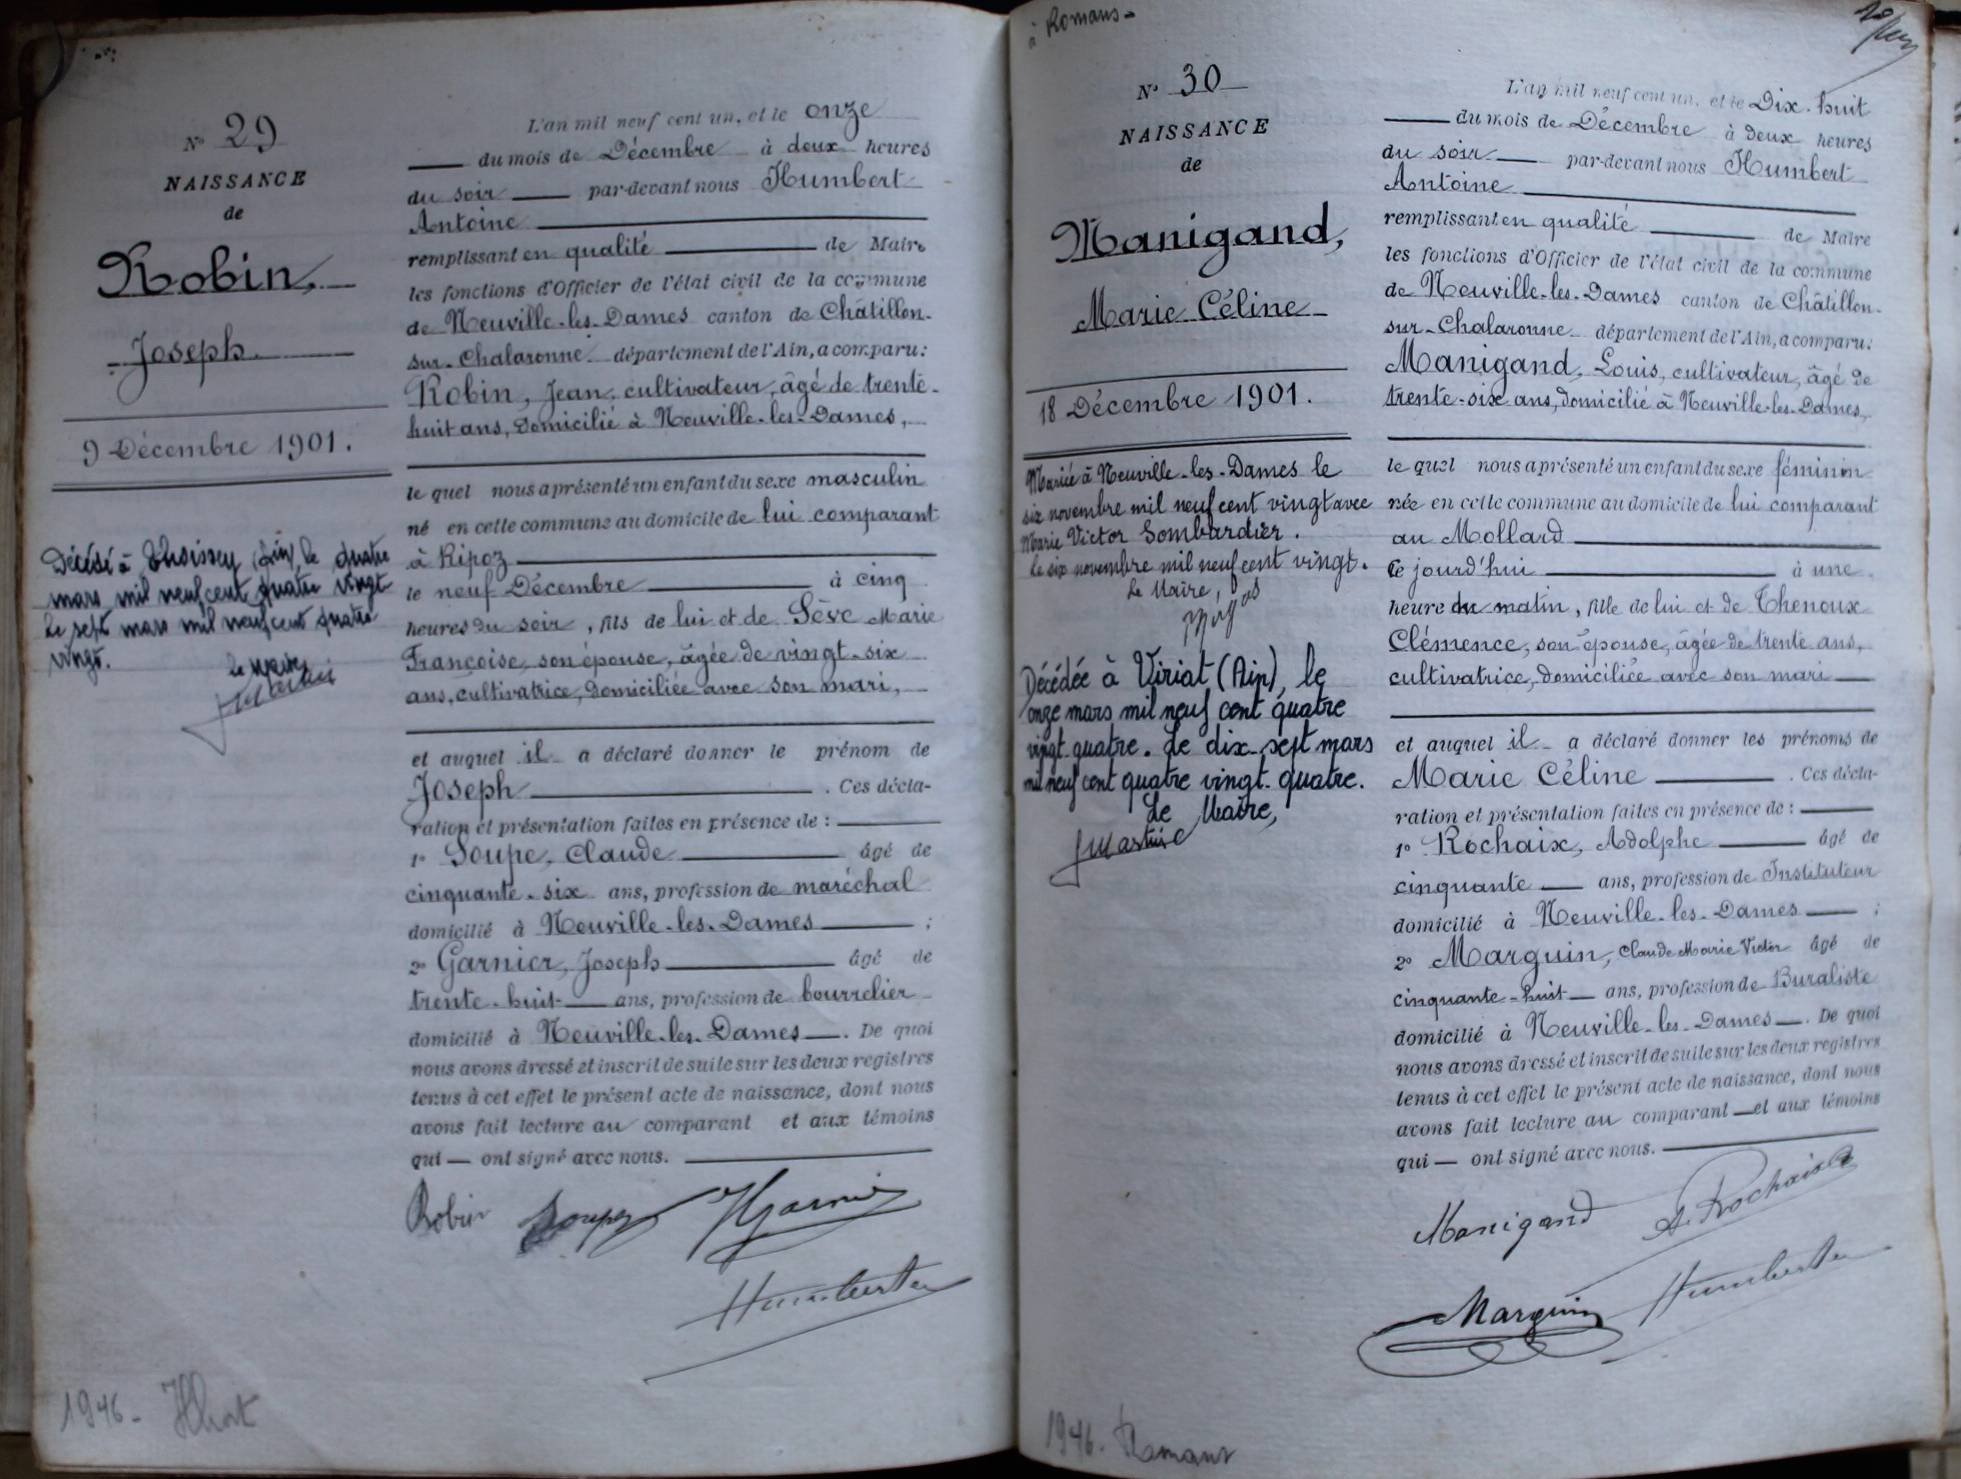 N° 29
NAISSANCE
de
Robin,
Joseph
9 Décembre 1901.
Décédé à Thoissey (Ain), le quatre
mars mil neuf cent quatre vingt
Le sept mars mil neuf cent quatre
vingt.
Le Maire
L'an mil neuf cent un, et le onze
du mois de Décembre à deux heures
du soir par-devant nous Humbert
Antoine
remplissant en qualité de Maire
les fonctions d'Officier de l'état civil de la commune
de Neuville-les-Dames canton de Châtillon-
sur-Chalaronne département de l'Ain, a comparu:
Robin, Jean, cultivateur, âgé de trente-
huit ans, domicilié à Neuville-les-Dames,
le quel nous a présenté un enfant du sexe masculin
né en cette commune au domicile de lui comparant
à Ripoz
le neuf Décembre à cinq
heures du soir, fils de lui et de Sève Marie
Françoise, son épouse, âgée de vingt-six
ans, cultivatrice, domiciliée avec son mari,
et auquel il a déclaré donner le prénom de
Joseph. Ces décla-
ration et présentation faites en présence de :
1° Soupe, Claude âgé de
cinquante-six ans, profession de maréchal
domicilié à Neuville-les-Dames ;
2° Garnier, Joseph âgé de
trente-huit ans, profession de bourrelier
domicilié à Neuville-les-Dames. De quoi
nous avons dressé et inscrit de suite sur les deux registres
tenus à cet effet le présent acte de naissance, dont nous
avons fait lecture au comparant et aux témoins
qui ont signé avec nous.
Robin Soupe JGarnier
Humbert
1946-
à Romans-
N° 30
NAISSANCE
de
Manigand,
Marie Céline
18 Décembre 1901.
Mariée à Neuville-les-Dames le
six novembre mil neuf cent vingt avec
Marie Victor Sombardier.
Le six novembre mil neuf cent vingt.
Le Maire,
Décédée à Viriat (Ain), le
onze mars mil neuf cent quatre
vingt-quatre. Le dix-sept mars
mil neuf cent quatre vingt-quatre.
Le Maire,
L'an mil neuf cent un, et le Dix-huit
du mois de Décembre à deux heures
du soir par-devant nous Humbert
Antoine
remplissant en qualité de Maire
les fonctions d'Officier de l'état civil de la commune
de Neuville-les-Dames canton de Châtillon-
sur-Chalaronne département de l'Ain, a comparu:
Manigand, Louis, cultivateur, âgé de
trente-six ans, domicilié à Neuville-les-Dames,
le quel nous a présenté un enfant du sexe féminin
née en cette commune au domicile de lui comparant
au Mollard
ce jourd'hui à une
heure du matin, fille de lui et de Thenoux
Clémence, son épouse, âgée de trente ans,
cultivatrice, domiciliée avec son mari
et auquel il a déclaré donner les prénoms de
Marie Céline. Ces décla-
ration et présentation faites en présence de :
1° Rochaix, Adolphe âgé de
cinquante ans, profession de Instituteur
domicilié à Neuville-les-Dames ;
2° Marguin, Claude Marie Victor âgé de
cinquante-huit ans, profession de Buraliste
domicilié à Neuville-les-Dames. De quoi
nous avons dressé et inscrit de suite sur les deux registres
tenus à cet effet le présent acte de naissance, dont nous
avons fait lecture au comparant et aux témoins
qui ont signé avec nous.
Manigand A. Rochaix
Marguin Humbert
1946- Romans